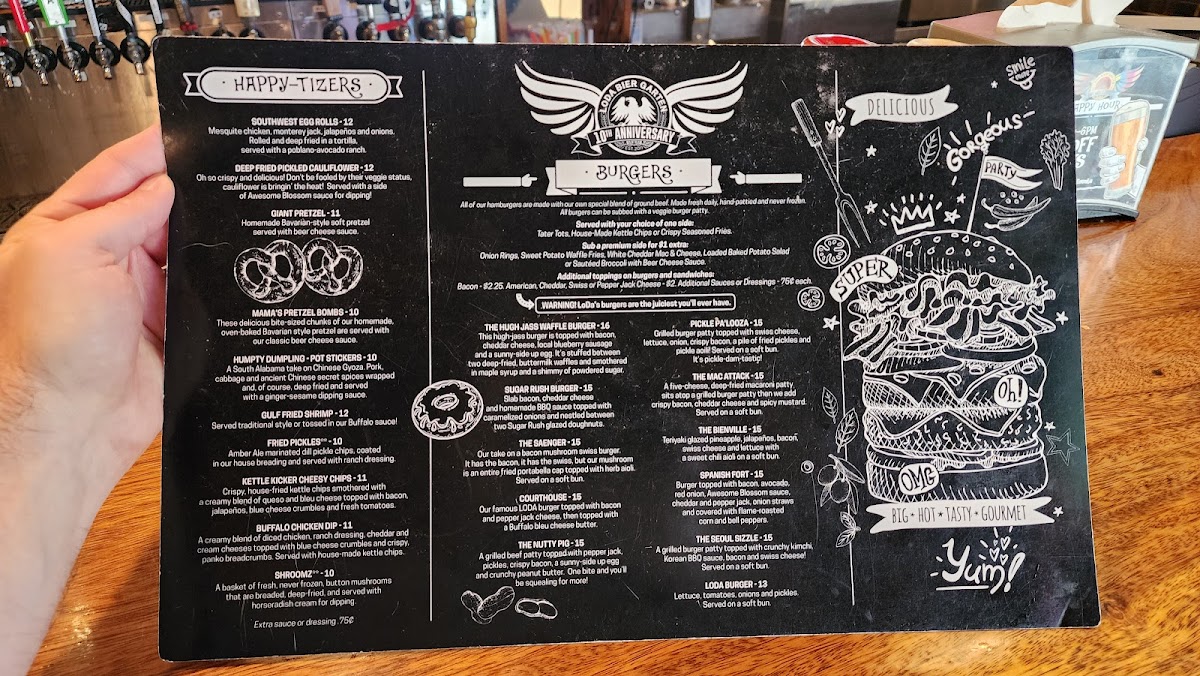 HAPPY-TIZERS
SOUTHWEST EGG ROLLS - 12
Mesquite chicken, monterey jack, jalapeños and onions.
Rolled and deep fried in a tortilla,
served with a poblano-avocado ranch.
DEEP FRIED PICKLED CAULIFLOWER - 12
Oh so crispy and delicious! Don't be fooled by their veggie status,
cauliflower is bringin' the heat! Served with a side
of Awesome Blossom sauce for dipping!
GIANT PRETZEL - 11
Homemade Bavarian-style soft pretzel
served with beer cheese sauce.
MAMA'S PRETZEL BOMBS - 10
These delicious bite-sized chunks of our homemade,
oven-baked Bavarian style pretzel are served with
our classic beer cheese sauce.
HUMPTY DUMPLING - POT STICKERS - 10
A South Alabama take on Chinese Gyoza. Pork,
cabbage and ancient Chinese secret spices wrapped
and, of course, deep fried and served
with a ginger-sesame dipping sauce.
GULF FRIED SHRIMP - 12
Served traditional style or tossed in our Buffalo sauce!
FRIED PICKLES** - 10
Amber Ale marinated dill pickle chips, coated
in our house breading and served with ranch dressing.
KETTLE KICKER CHEESY CHIPS - 11
Crispy, house-fried kettle chips smothered with
a creamy blend of queso and bleu cheese topped with bacon,
jalapeños, blue cheese crumbles and fresh tomatoes.
BUFFALO CHICKEN DIP - 11
A creamy blend of diced chicken, ranch dressing, cheddar and
cream cheeses topped with blue cheese crumbles and crispy,
panko breadcrumbs. Served with house-made kettle chips.
SHROOMZ** - 10
A basket of fresh, never frozen, button mushrooms
that are breaded, deep-fried, and served with
horseradish cream for dipping.
Extra sauce or dressing .75¢
LODA BIER GARTEN
10TH ANNIVERSARY
BURGERS
All of our hamburgers are made with our own special blend of ground beef. Made fresh daily, hand-pattied and never frozen.
All burgers can be subbed with a veggie burger patty.
Served with your choice of one side:
Tater Tots, House-Made Kettle Chips or Crispy Seasoned Fries.
Sub a premium side for $1 extra:
Onion Rings, Sweet Potato Waffle Fries, White Cheddar Mac & Cheese, Loaded Baked Potato Salad
or Sautéed Broccoli with Beer Cheese Sauce.
Additional toppings on burgers and sandwiches:
Bacon - $2.25. American, Cheddar, Swiss or Pepper Jack Cheese - $2. Additional Sauces or Dressings - 75¢ each.
WARNING! LoDa's burgers are the juiciest you'll ever have.
THE HUGH JASS WAFFLE BURGER - 16
This hugh-jass burger is topped with bacon,
cheddar cheese, local blueberry sausage
and a sunny-side up egg. It's stuffed between
two deep-fried, buttermilk waffles and smothered
in maple syrup and a shimmy of powdered sugar.
SUGAR RUSH BURGER - 15
Slab bacon, cheddar cheese
and homemade BBQ sauce topped with
caramelized onions and nestled between
two Sugar Rush glazed doughnuts.
THE SAENGER - 15
Our take on a bacon mushroom swiss burger.
It has the bacon, it has the swiss, but our mushroom
is an entire fried portabella cap topped with herb aioli.
COURTHOUSE - 15
Our famous LODA burger topped with bacon
and pepper jack cheese, then topped with
a Buffalo bleu cheese butter.
THE NUTTY PIG - 15
A grilled beef patty topped with pepper jack,
pickles, crispy bacon, a sunny-side up egg
and crunchy peanut butter. One bite and you'll
be squealing for more!
PICKLE PA'LOOZA - 15
Grilled burger patty topped with swiss cheese,
lettuce, onion, crispy bacon, a pile of fried pickles and
pickle aoili! Served on a soft bun.
It's pickle-dam-tastig!
THE MAC ATTACK - 15
A five-cheese, deep-fried macaroni patty
sits atop a grilled burger patty then we add
crispy bacon, cheddar cheese and spicy mustard.
Served on a soft bun.
THE BIENVILLE - 15
Teriyaki glazed pineapple, jalapeños, bacon,
swiss cheese and lettuce with
a sweet chili aioli on a soft bun.
Served on a soft bun.
SPANISH FORT - 15
Burger topped with bacon, avocado,
red onion, Awesome Blossom sauce,
cheddar and pepper jack, onion straws
and covered with flame-roasted
corn and bell peppers.
THE SEOUL SIZZLE - 15
A grilled burger patty topped with crunchy kimchi,
Korean BBQ sauce, bacon and swiss cheese!
Served on a soft bun.
LODA BURGER - 13
Lettuce, tomatoes, onions and pickles.
Served on a soft bun.
smile
DELICIOUS
Gorgeous
PARTY
SUPER
Oh!
OMG
BIG * HOT * TASTY * GOURMET
Yum!
HOUR
6PM
OFF